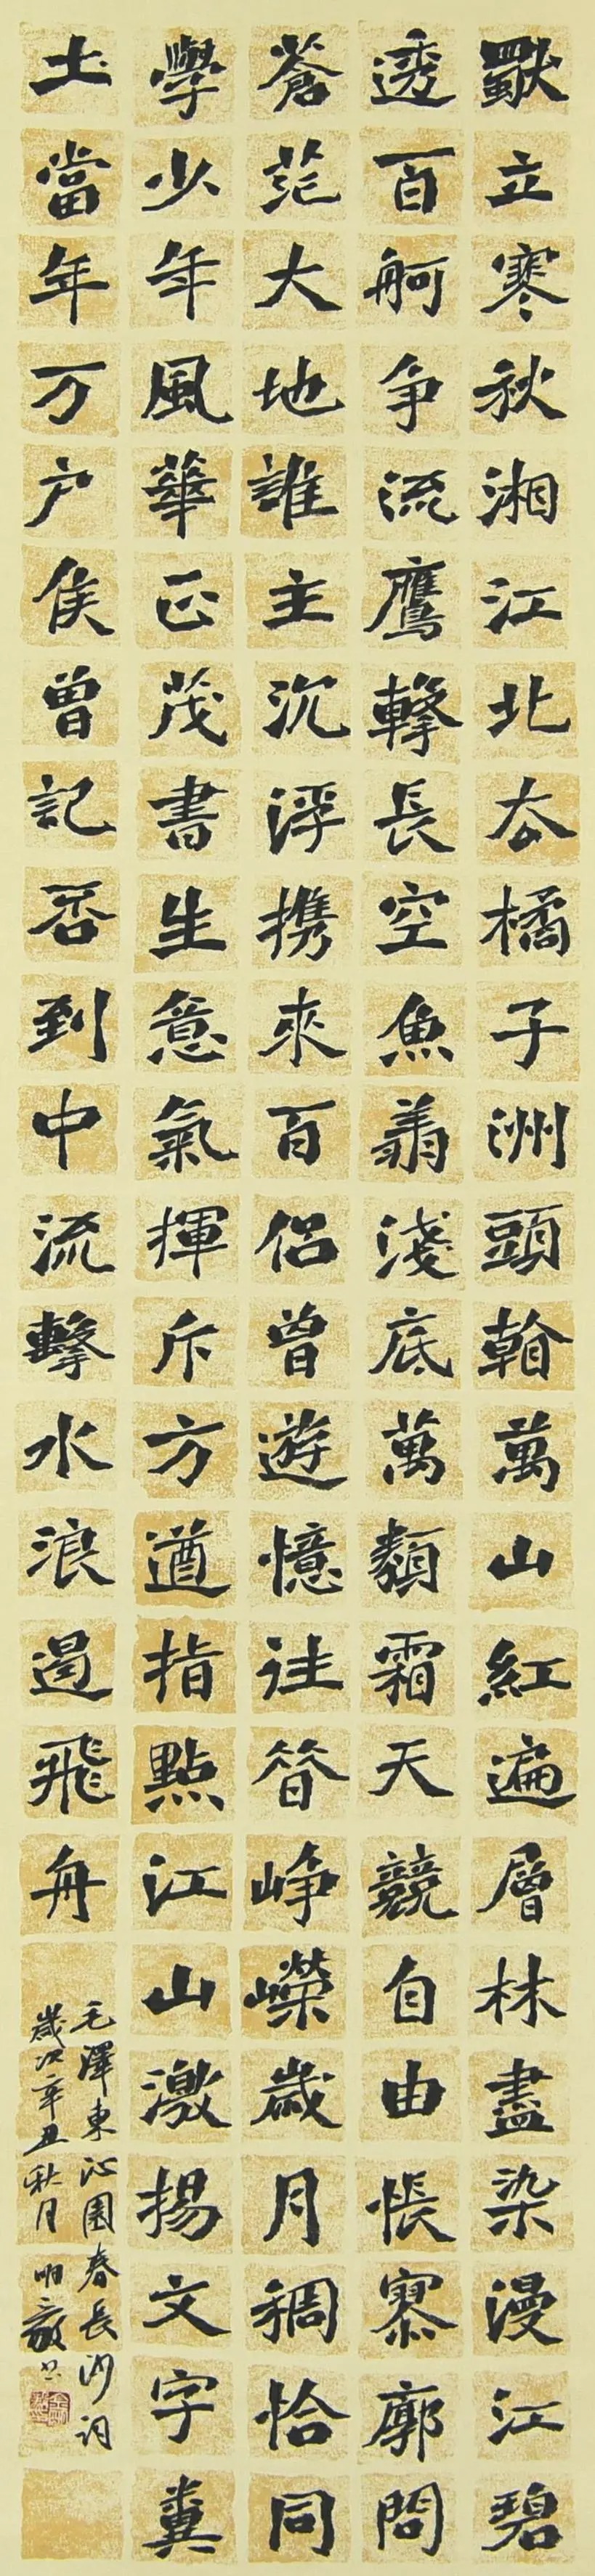 獨立寒秋湘江北去橘子洲頭看萬山紅遍層林盡染漫江碧
透百舸争流鷹擊長空魚翔淺底萬類霜天競自由悵寥廓問
蒼茫大地誰主沉浮携來百侣曾遊憶往昔崢嶸歲月稠恰同
學少年風華正茂書生意氣揮斥方遒指點江山激揚文字糞
土當年万户侯曾記否到中流擊水浪遏飛舟
毛澤東沁園春長沙詞
歲次辛丑秋月明